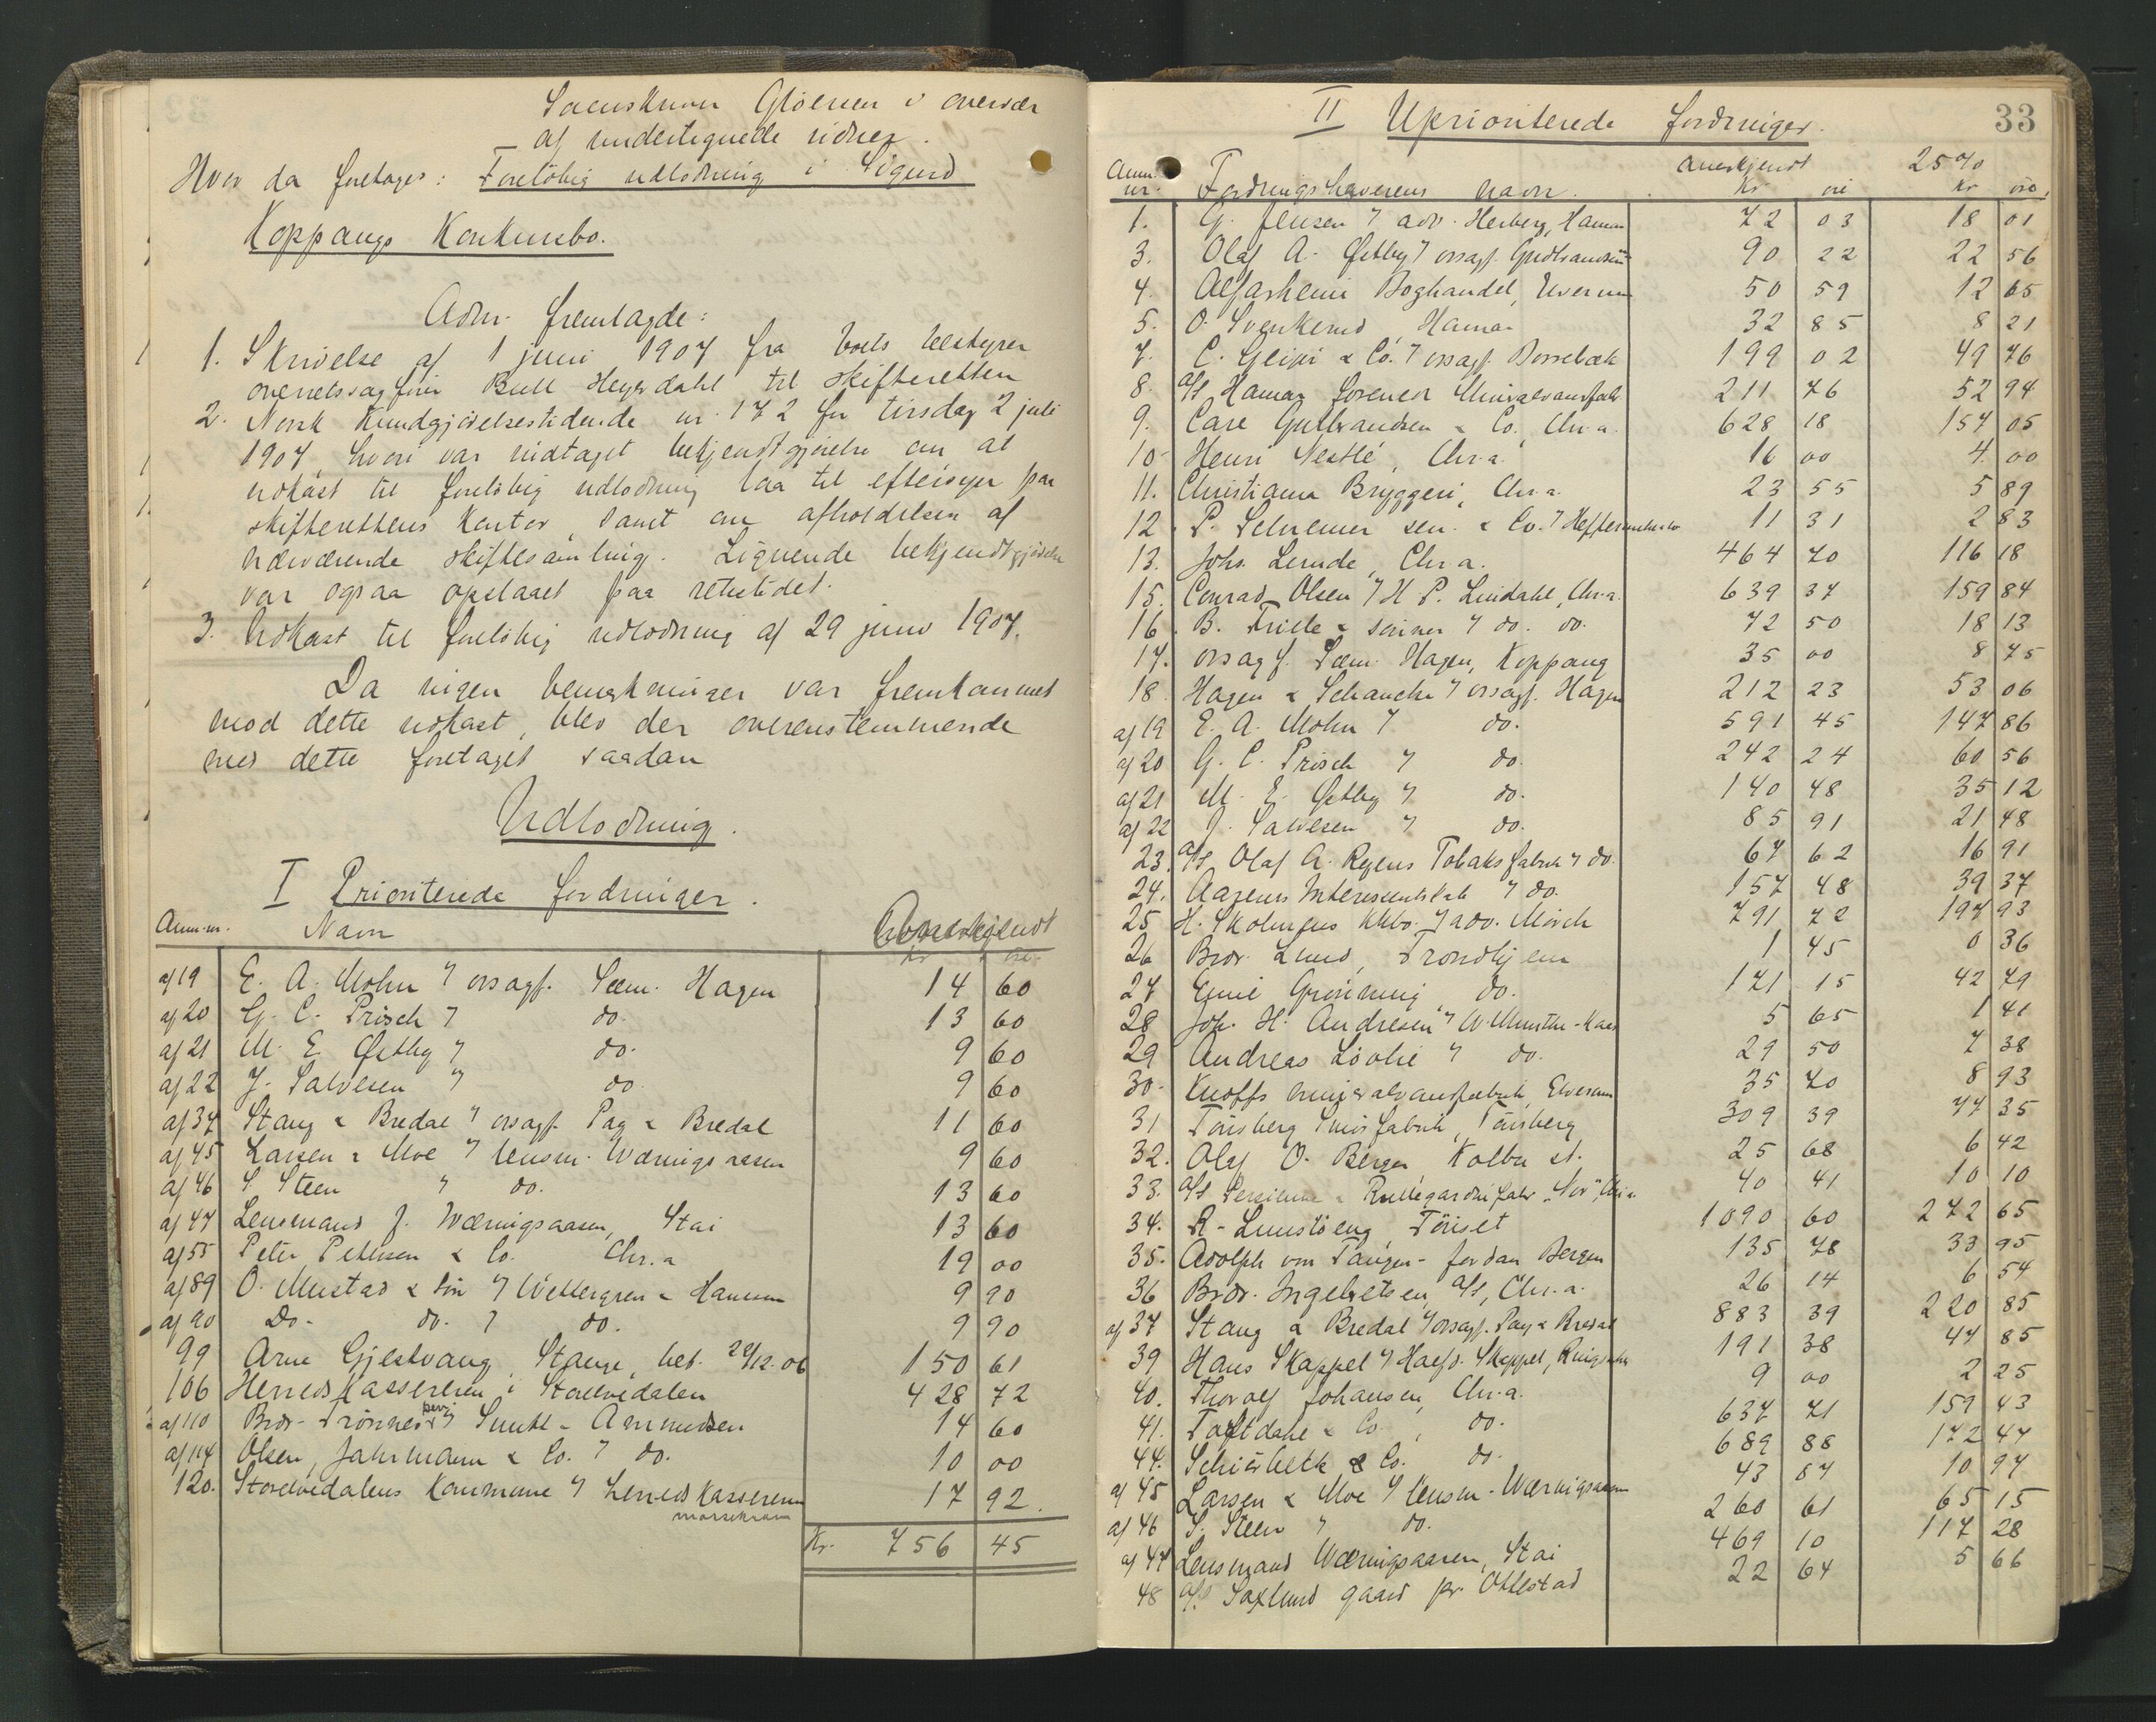 af undertegnede vidner.
Hvor da foretages: Foreløbig udlodning i Sigurd
Koppangs Konkursbo.
Adm. fremlagde:
1. Skrivelse af 1 juni 1907 fra boets bestyrer
overretssagfører Bull Heyerdahl til skifteretten
2. Norsk Kundgjørelsestidende nr. 172 for tirsdag 2 juli
1907, hvori var indtaget bekjendtgjørelse om at
udkast til foreløbig udlodning laa til eftersyn paa
skifterettens kontor, samt om afholdelsen af
nærværende skiftesamling. Lignende bekjendtgjørelse
var ogsaa opslaaet paa retsstedet.
3. Udkast til foreløbig udlodning af 29 juni 1907.
Da ingen bemerkninger var fremkommet
mod dette udkast, blev der overenstemmende
med dette foretaget saadan
Udlodning.
I Prioriterede fordringer.
Anm.-nr. Navn Anerkjendt
Kr. øre.
af 19 E. A. Mohn v/ orsagf. Sæm. Hagen 14 60
af 20 G. C. Prisch v/ do. 13 60
af 21 M. E. Østby v/ do. 9 60
af 22 J. Salvesen v/ do 9 60
af 37 Stang & Bredal v/ orsagf. Pay & Bredal 11 60
af 45 Larsen & Moe v/ lensm. Wærnigsaasen 9 60
af 46 S. Steen v/ do. 13 60
af 47 Lensmand J. Wærnigsaasen, Stai 13 60
af 55 Peter Petersen & Co. Chr.a 19 00
af 89 O. Mustad & Søn v/ Wettergren & Hansen 9 90
af 90 Do. do. v/ do. 9 90
99 Arne Gjestvang, Stange, bet. 29/12.06 150 61
106 Herredskassereren i Storelvedalen 428 72
af 110 Brdr. Trønnes v/ Smith & Amundsen 14 60
af 114 Olsen, Jahrmann & Co. v/ do. 10 00
120. Storelvedalens Kommune v/ herredskassereren 17 92.
Kr. 756 45
33
II Uprioriterede fordringer.
Anm. nr. Fordringshaverens navn. Anerkjendt Kr øre 25% Kr øre.
1. G. Jensen v/ adv. Herberg, Hamar 72 03 18 01
3. Olaf A. Østby v/ orsagf. Gudbrandsen 90 22 22 56
4. Alfarheim Boghandel, Elverum 50 59 12 65
5. O. Svenkerud, Hamar 32 85 8 21
7. C. Geijer & Co. v/ orsagf. Borrebæk 199 02 49 76
8. A/s Hamar forener Mineralvansfab. 211 76 52 94
9. Carl Gulbrandsen & Co., Chr.a. 628 18 157 05
10 Henri Nestlé, Chr.a. 16 00 4 00
11. Christiania Bryggeri, Chr.a. 23 55 5 89
12. P. Schreiner sen. & Co. v/ 11 31 2 83
13. Johs. Lunde, Chr.a. 464 70 116 18
15. Conrad Olsen v/ H. P. Lindahl, Chr.a. 639 37 159 84
16. B. Friele & sønner v/ do. do. 72 50 18 13
17. orsagf. Sæm. Hagen, Koppang 35 00 8 75
18. Hagen & Schanche v/ orsagf. Hagen 212 23 53 06
af 19 E. A. Mohn v/ do. 591 45 147 86
af 20 G. C. Prisch v/ do. 242 24 60 56
af 21 M. E. Østby v/ do. 140 48 35 12
af 22 J. Salvesen v/ do. 85 91 21 48
23. A/s Olaf A. Ryens Tobaksfabrik v/ do. 67 62 16 91
24. Aagens Interessentskab v/ do. 157 48 39 37
25 H. Skolmens kkbo. v/ adv. Mørch 791 72 197 93
26 Brdr. Lund, Trondhjem 1 45 0 36
27 Emil Grønning, do. 171 15 42 79
28 Joh. H. Andresen v/ W. Munthe-Kaas 5 65 1 41
29 Andreas Løvlie v/ do. 29 50 7 38
30. Knoffs mineralvansfabrik, Elverum 35 70 8 93
31 Tønsberg Smørfabrik, Tønsberg 309 39 77 35
32. Olaf O. Berger, Kolbu st. 25 68 6 42
33. A/s Persienne & Rullegardinfabr. "Nor", Chr.a 40 41 10 10
34. R. Lunstøeng, Tønset 1090 60 272 65
35. Adolph von Tangen-Jordan Bergen 135 78 33 95
36 Brdr. Ingebretsen, A/s, Chr.a. 26 14 6 54
af 37 Stang & Bredal v/ orsagf. Pay & Bredal 883 39 220 85
39 Hans Skappel v/ Skappel, 191 38 47 85
40. Thorolf Johansen, Chr.a. 9 00 2 25
41. Taftdahl & Co., do. 637 71 159 43
44. Schiørbeck & Co. do. 689 88 172 47
af 45 Larsen & Moe v/ lensm. Wærnigsaasen 43 87 10 97
af 46 S. Steen v/ do. 260 61 65 15
af 47 Lensmand Wærnigsaasen, Stai 469 10 117 28
48 A/s Saxlund gaard pr. Ottestad 22 64 5 66